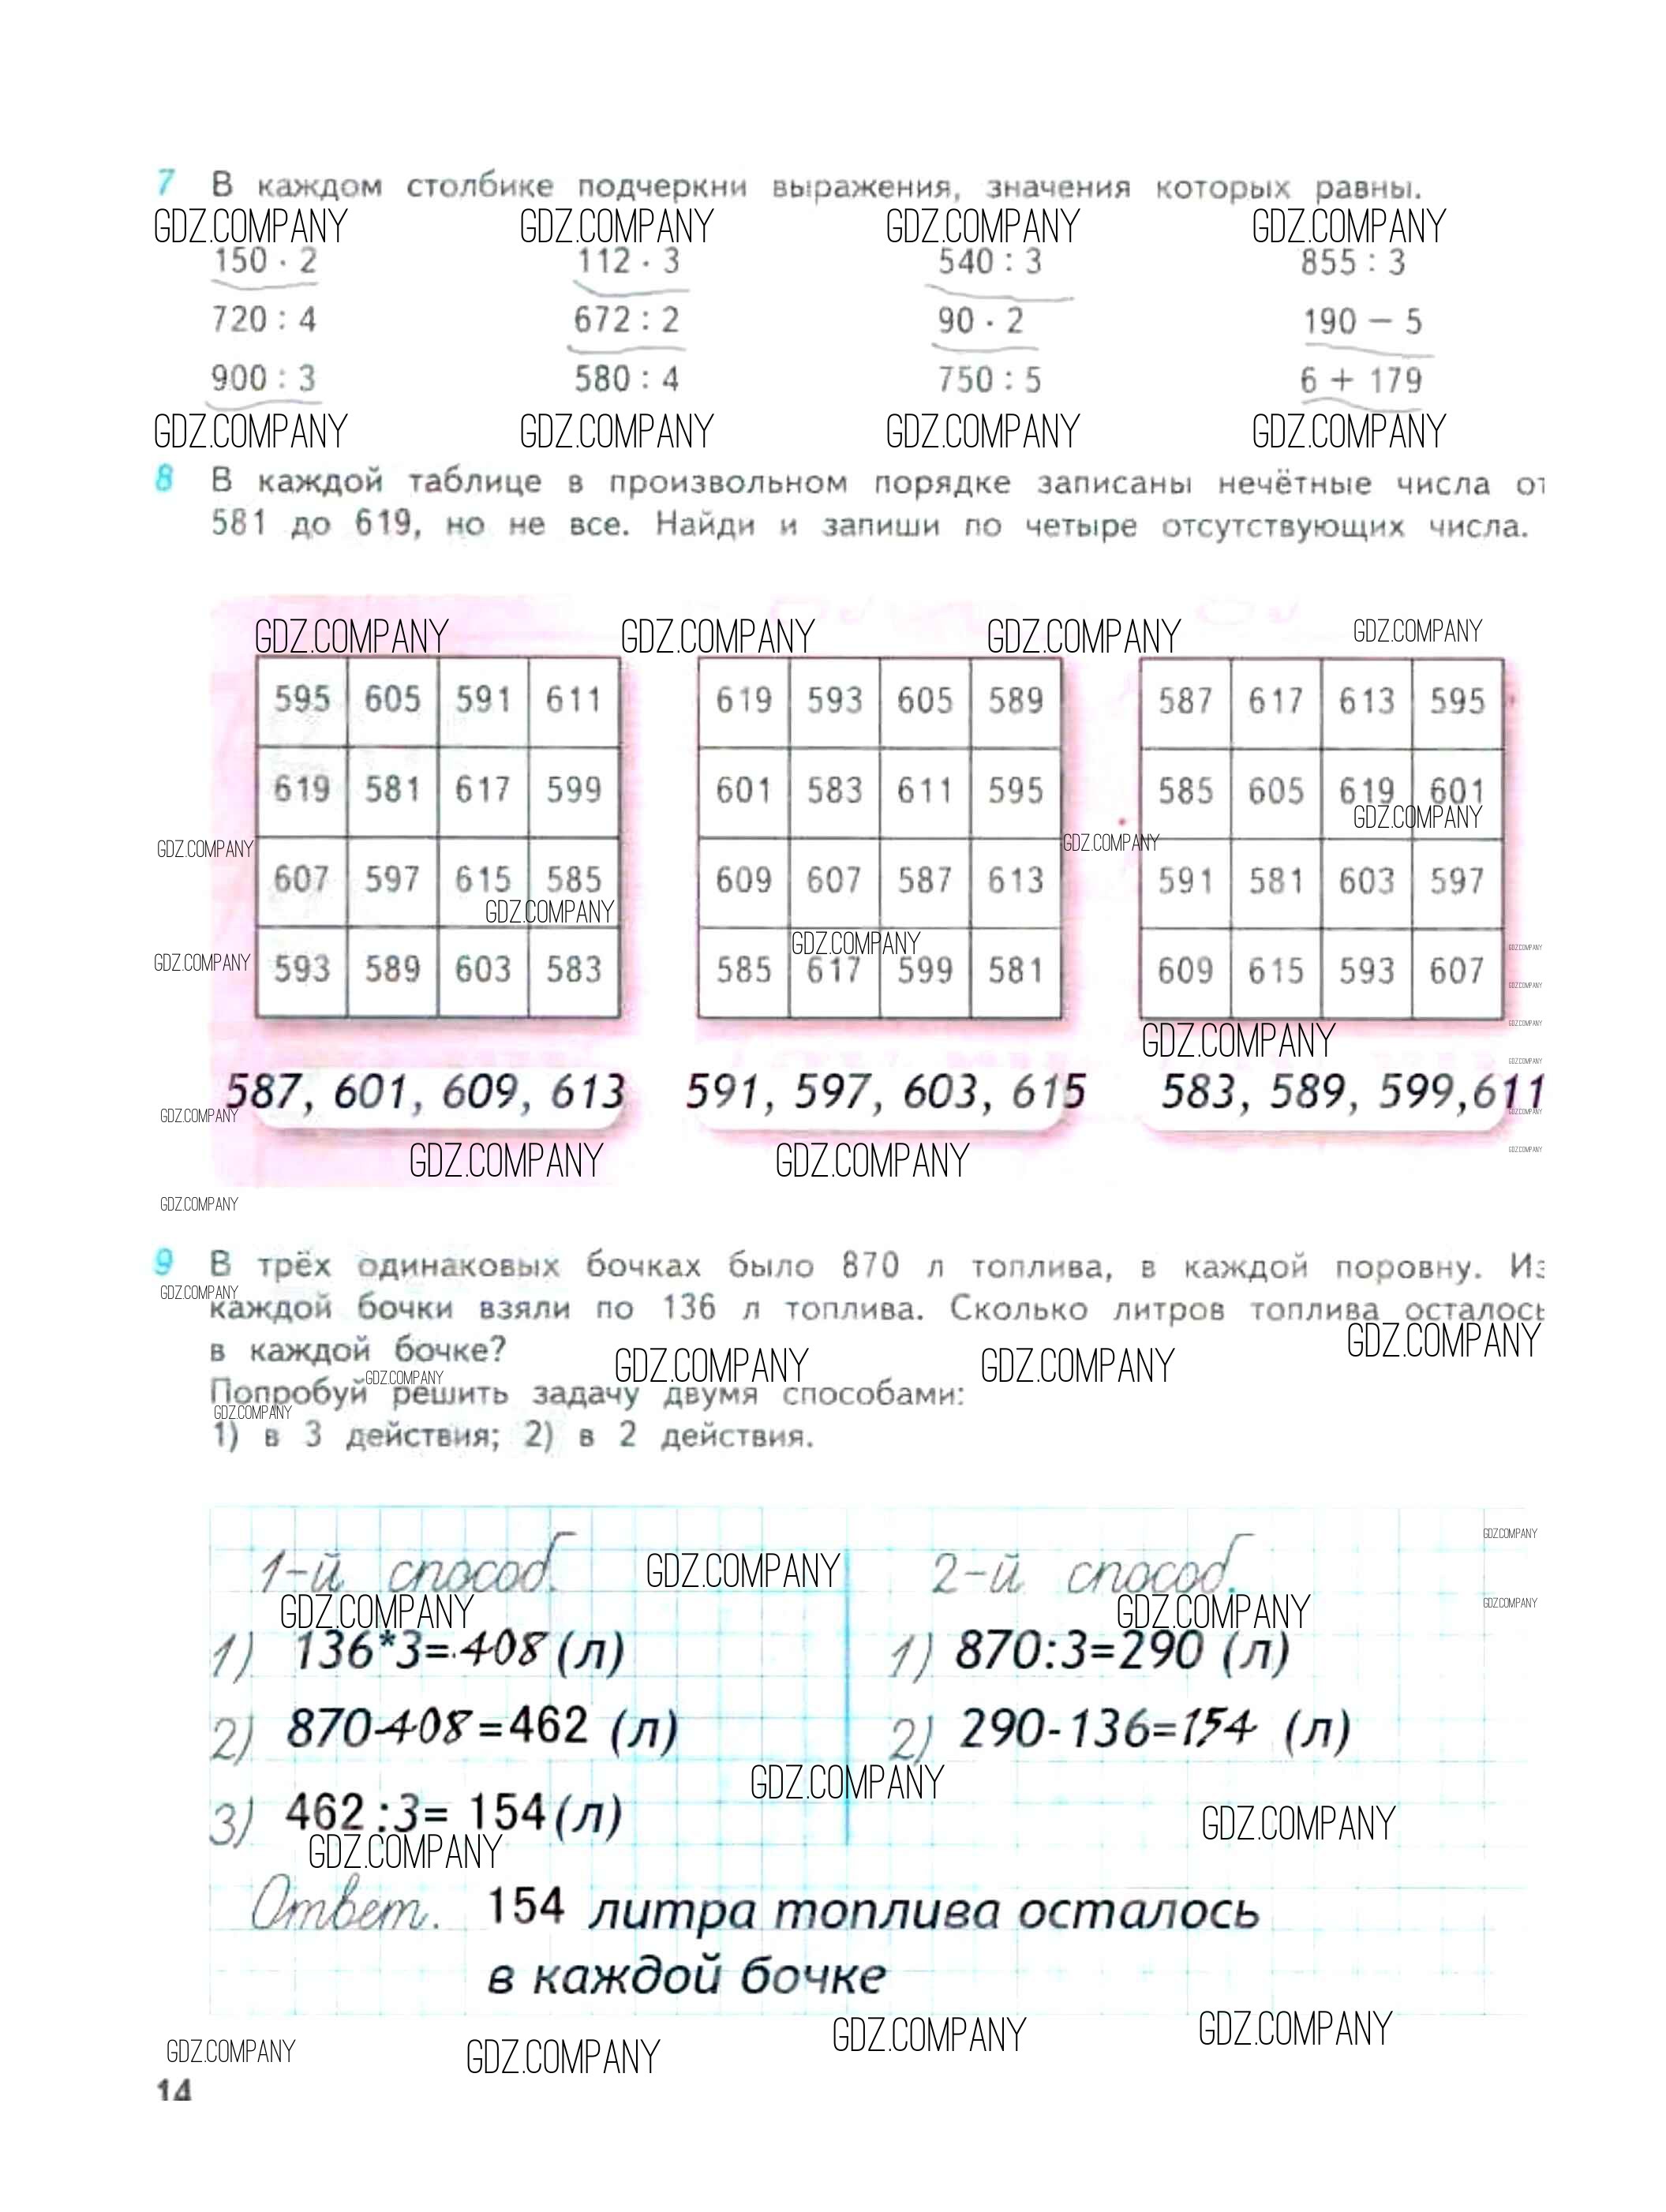 7 В каждом столбике подчеркни выражения, значения которых равны.
GDZ.COMPANY GDZ.COMPANY GDZ.COMPANY GDZ.COMPANY
150 · 2 112 · 3 540 : 3 855 : 3
720 : 4 672 : 2 90 · 2 190 − 5
900 : 3 580 : 4 750 : 5 6 + 179
GDZ.COMPANY GDZ.COMPANY GDZ.COMPANY GDZ.COMPANY
8 В каждой таблице в произвольном порядке записаны нечётные числа от
581 до 619, но не все. Найди и запиши по четыре отсутствующих числа.
GDZ.COMPANY GDZ.COMPANY GDZ.COMPANY GDZ.COMPANY
595 605 591 611 619 593 605 589 587 617 613 595
619 581 617 599 601 583 611 595 585 605 619 601
GDZ.COMPANY GDZ.COMPANY GDZ.COMPANY
607 597 615 585 609 607 587 613 591 581 603 597
GDZ.COMPANY GDZ.COMPANY GDZ.COMPANY
GDZ.COMPANY
593 589 603 583 585 617 599 581 609 615 593 607
GDZ.COMPANY
GDZ.COMPANY GDZ.COMPANY
GDZ.COMPANY
587, 601, 609, 613 591, 597, 603, 615 583, 589, 599,611
GDZ.COMPANY GDZ.COMPANY
GDZ.COMPANY GDZ.COMPANY GDZ.COMPANY
GDZ.COMPANY
9 В трёх одинаковых бочках было 870 л топлива, в каждой поровну. Из
GDZ.COMPANY
каждой бочки взяли по 136 л топлива. Сколько литров топлива осталось
GDZ.COMPANY
в каждой бочке?
GDZ.COMPANY GDZ.COMPANY GDZ.COMPANY
Попробуй решить задачу двумя способами:
GDZ.COMPANY
1) в 3 действия; 2) в 2 действия.
GDZ.COMPANY
1-й способ. GDZ.COMPANY 2-й способ.
GDZ.COMPANY GDZ.COMPANY GDZ.COMPANY
1) 136*3=408 (л) 1) 870:3=290 (л)
2) 870-408=462 (л) 2) 290-136=154 (л)
GDZ.COMPANY
3) 462:3= 154(л) GDZ.COMPANY
GDZ.COMPANY
Ответ. 154 литра топлива осталось
в каждой бочке
GDZ.COMPANY GDZ.COMPANY GDZ.COMPANY GDZ.COMPANY
14